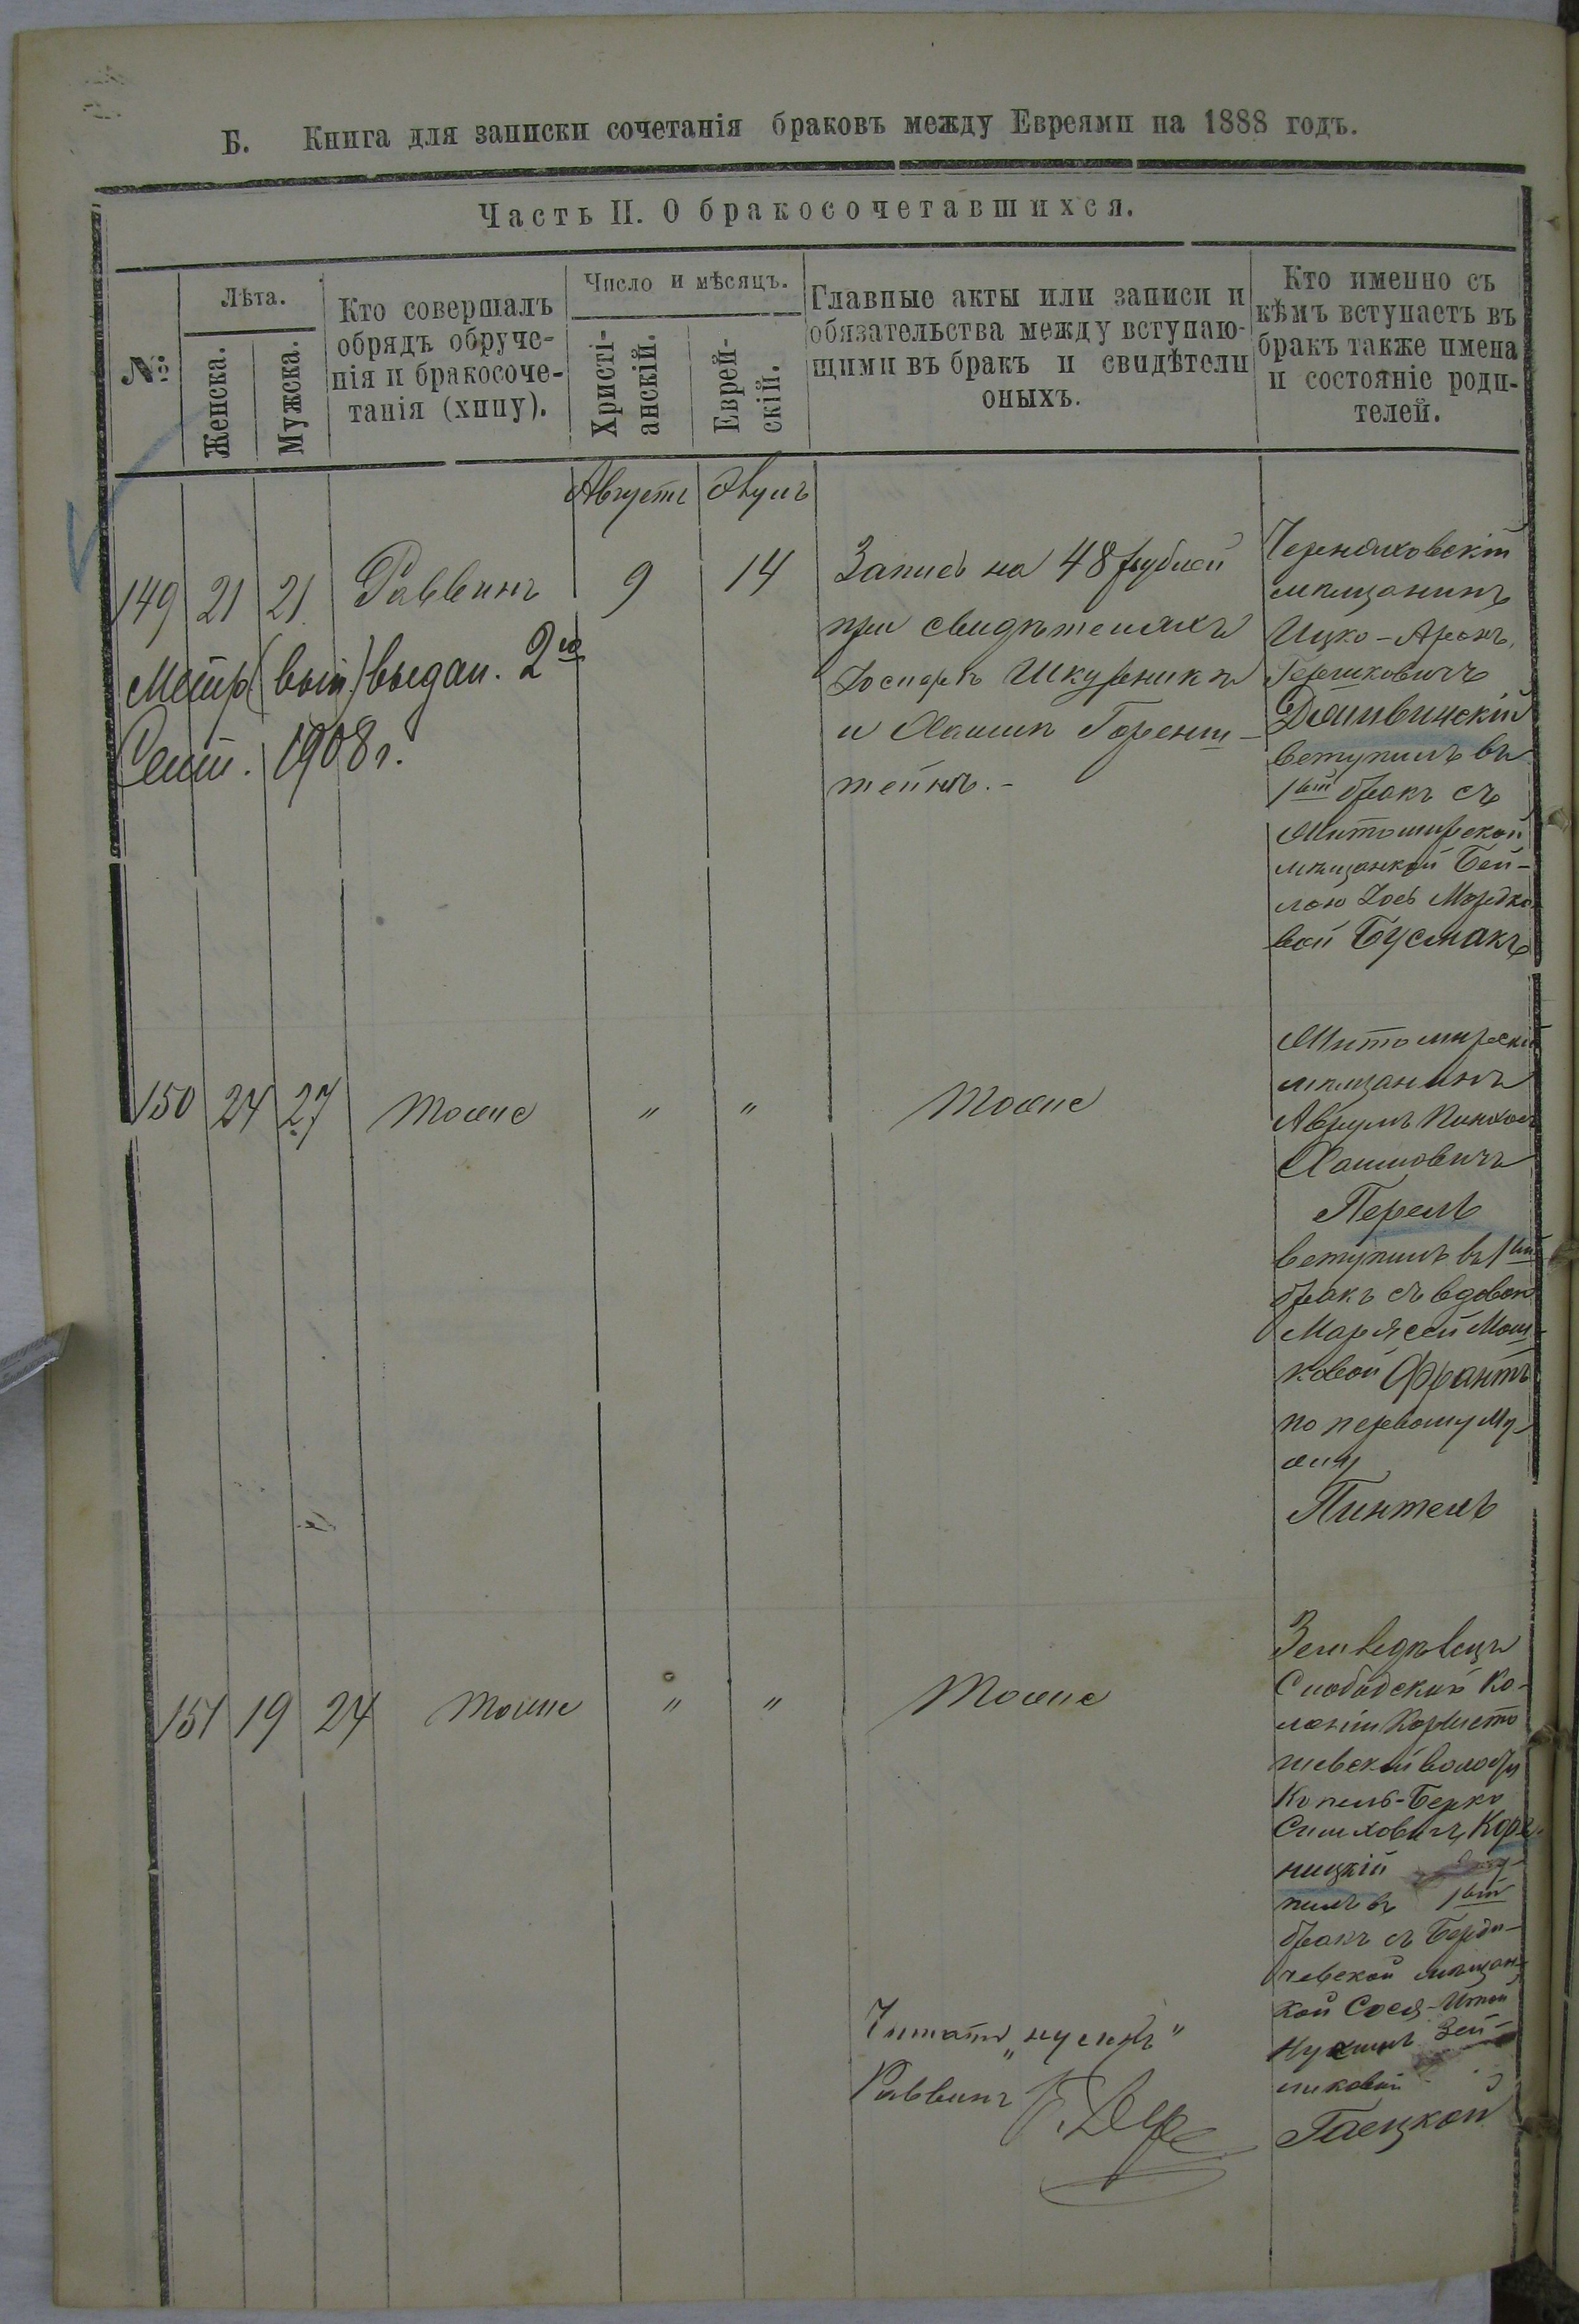 Б. Книга для записки сочетанія браковъ между Евреями на 1888 годъ.
Часть II. О бракосочетавшихся.
№
Лѣта.
Женска.
Мужска.
Кто совершалъ
обрядъ обруче-
нія и бракосоче-
танія (хипу).
Число и мѣсяцъ.
Христі-
анскій.
Еврей-
скій.
Главные акты или записи и
обязательства между вступаю-
щими въ бракъ и свидѣтели
оныхъ.
Кто именно съ
кѣмъ вступаетъ въ
бракъ также имена
и состояніе роди-
телей.
Августъ
149 21 21 Раввинъ 9 14
Метр. (вып.) выдан. 2го
Сент. 1908 г.
Запись на 48 рублей
при свидѣтеляхъ
Іосперѣ Шкурникъ
и Хаимъ Горенш-
тейнъ.-
Черняховскій
мѣщанинъ
Ицко-Аронъ
Гершковичъ
вступилъ въ
1вый бракъ съ
Житомирской
мѣщанкой Бей-
лою Мордко-
вой Бусмакъ
150 24 27 тоже " " Тоже
Житомирскій
мѣщанинъ
Аврумъ Пинхасъ
Хаимовичъ
Перель
вступилъ въ 1вый
бракъ съ вдовой
Марясей Мош-
ковой Франтъ
по первому му-
жу
Пинтель
151 19 24 тоже " " Тоже
Землведѣлецъ
Слободской Ко-
лоніи Коросто-
шевской волости
Копель-Берко
Симховичъ
ницкій
пилъ въ 1вый
бракъ съ Берди-
чевской мѣщан-
кой Сося-Итой
Нухимъ Зей-
ликовой
Гаецкой
Читать „нусинъ"
Раввинъ